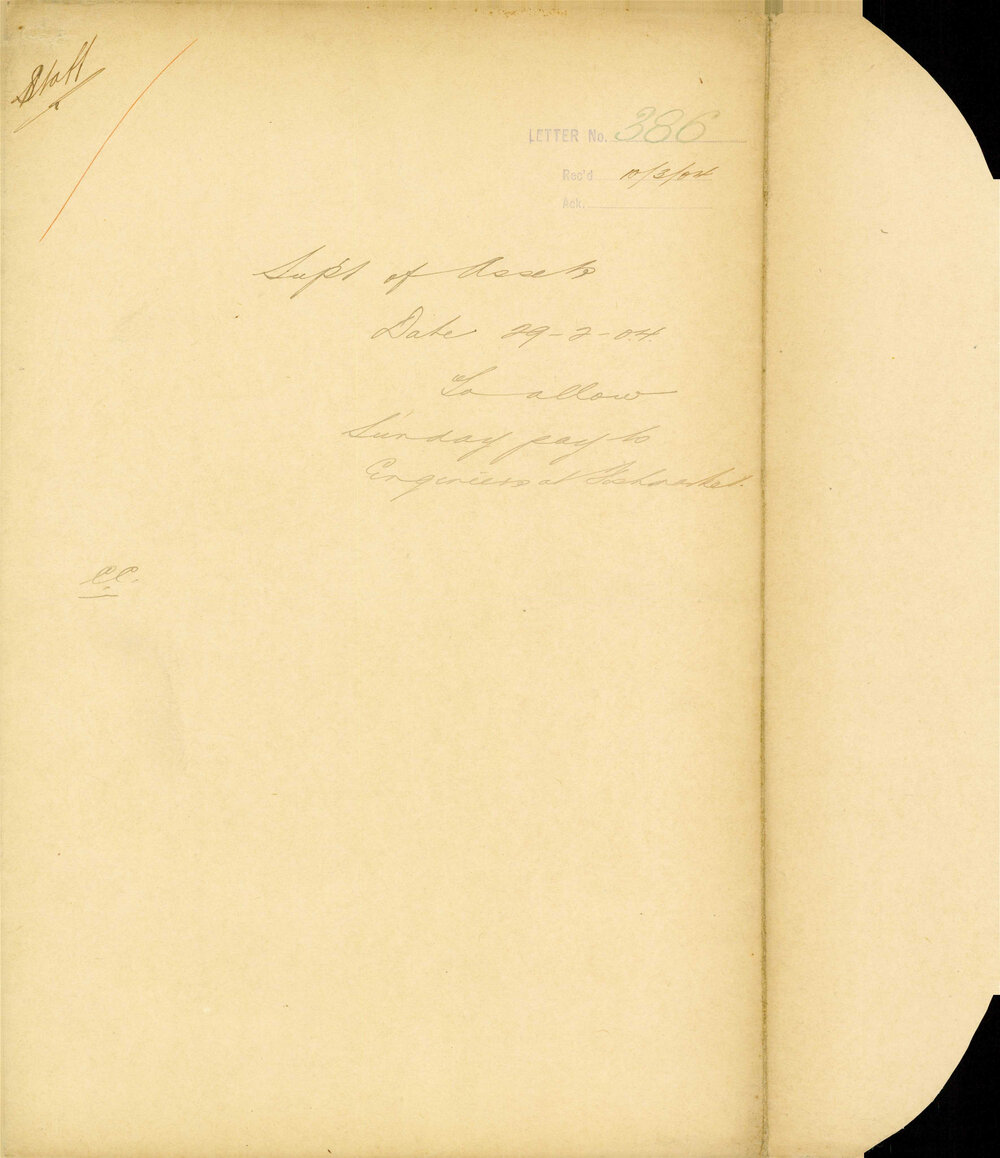 Staff
LETTER No. 386
Rec'd 10/3/04
Ack.
Supt of Assets
Date 29-2-04.
To allow
Sunday pay to
Engineers at Fishmarket.
CC.